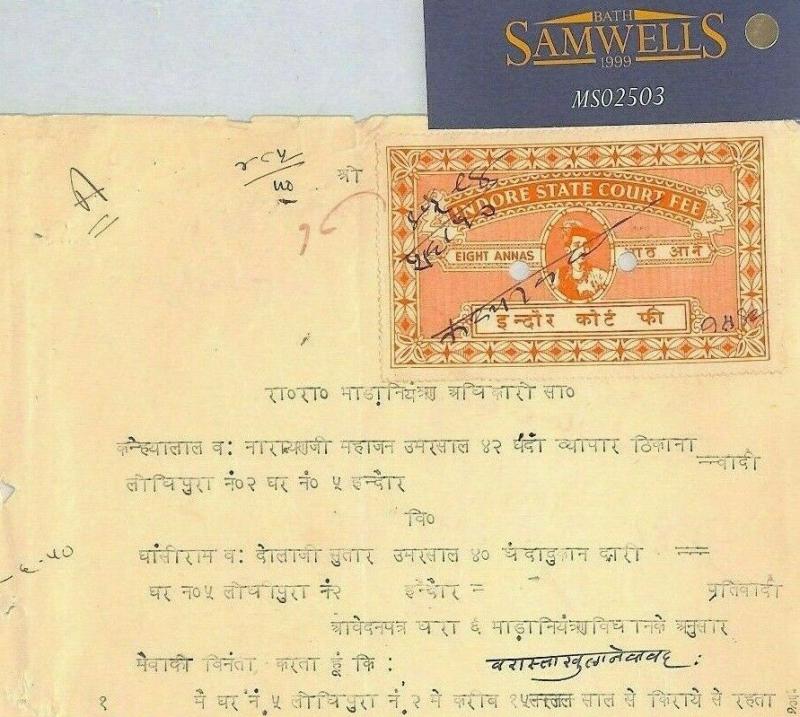 BATH
SAMWELLS
1999
MS02503
A
२८५
५०
श्री
INDORE STATE COURT FEE
EIGHT ANNAS
आठ आने
इन्दौर कोर्ट फी
रा०रा० भाड़ानियंत्रण अधिकारी सा०
कन्हैयालाल व: नारायणजी महाजन उमरसाल ४२ धंदा व्यापार ठिकाना
लोधिपुरा नं०२ घर नं० ५ इन्दौर
वादी
वि०
घांसीराम व: दोलाजी सुतार उमरसाल ४० धंदादुकानदारी
घर न०५ लोधीपुरा नं२ इन्दौर =
प्रतिवादी
आवेदनपत्र धारा ६ भाड़ानियंत्रणविधानके अनुसार
मेवाकी विनंता करता हूं कि :
१ मै घर नं. ५ लोधिपुरा नं. २ मे करीब १५ साल से किराये से रहता